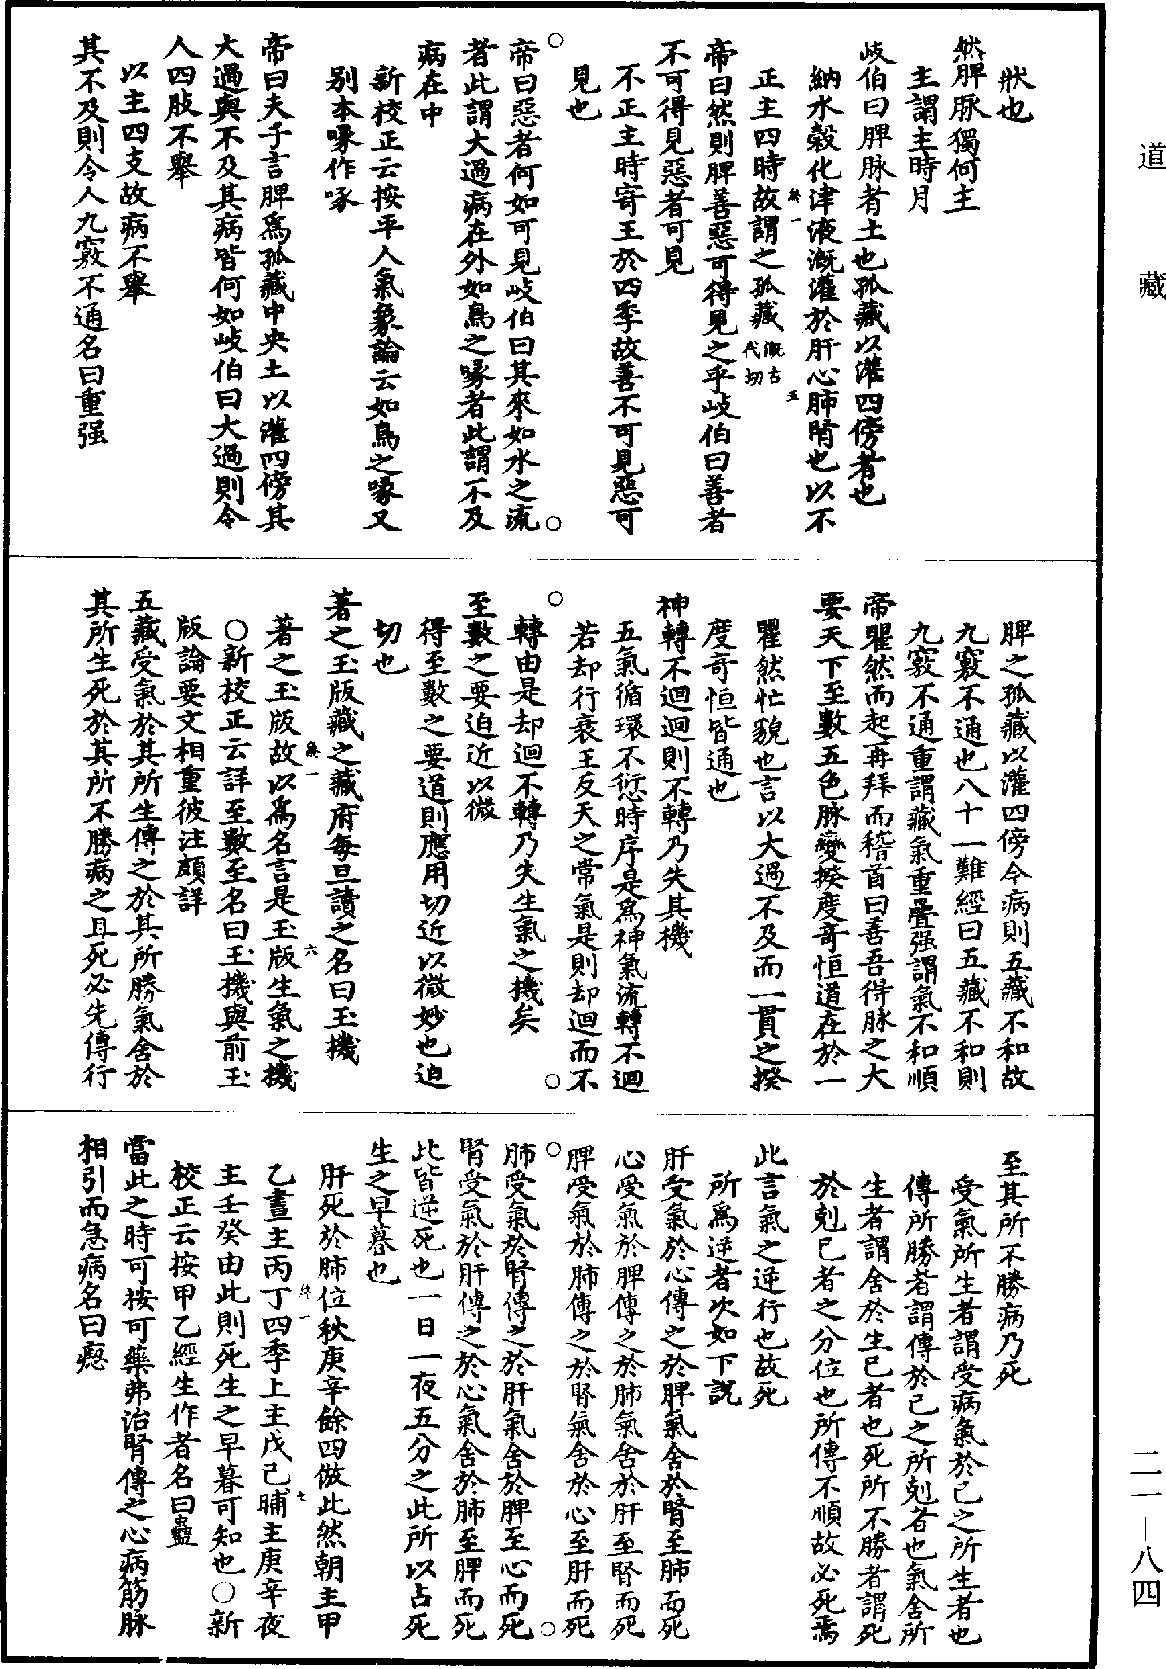 道藏
狀也
然脾脉獨何主
主謂主時月
岐伯曰脾脉者土也孤藏以灌四傍者也
納水穀化津液溉灌於肝心肺腎也以不
正主四時故謂之孤藏溉古代切
帝曰然則脾善惡可得見之乎岐伯曰善者
不可得見惡者可見
不正主時寄王於四季故善不可見惡可
見也
○帝曰惡者何如可見岐伯曰其來如水之流○
者此謂大過病在外如鳥之喙者此謂不及
病在中
新校正云按平人氣象論云如鳥之喙又
别本喙作啄
帝曰夫子言脾爲孤藏中央土以灌四傍其
大過與不及其病皆何如岐伯曰大過則令
人四肢不舉
以主四支故病不舉
其不及則令人九竅不通名曰重强
脾之孤藏以灌四傍今病則五藏不和故
九竅不通也八十一難經曰五藏不和則
九竅不通重謂藏氣重疊强謂氣不和順
帝瞿然而起再拜而稽首曰善吾得脉之大
要天下至數五色脉變揆度奇恒道在於一
瞿然忙貌也言以大過不及而一貫之揆
度奇恒皆通也
神轉不迴迴則不轉乃失其機
五氣循環不愆時序是爲神氣流轉不迴
若却行衰王反天之常氣是則却迴而不
○轉由是却迴不轉乃失生氣之機矣○
至數之要迫近以微
得至數之要道則應用切近以微妙也迫
切也
著之玉版藏之藏府每旦讀之名曰玉機
著之玉版故以爲名言是玉版生氣之機
○新校正云詳至數至名曰玉機與前玉
版論要文相重彼注頗詳
五藏受氣於其所生傳之於其所勝氣舍於
其所生死於其所不勝病之且死必先傳行
至其所不勝病乃死
受氣所生者謂受病氣於己之所生者也
傳所勝者謂傳於己之所剋者也氣舍所
生者謂舍於生己者也死所不勝者謂死
於剋己者之分位也所傳不順故必死焉
此言氣之逆行也故死
所爲逆者次如下說
肝受氣於心傳之於脾氣舍於腎至肺而死
心受氣於脾傳之於肺氣舍於肝至腎而死
脾受氣於肺傳之於腎氣舍於心至肝而死
○肺受氣於腎傳之於肝氣舍於脾至心而死○
腎受氣於肝傳之於心氣舍於肺至脾而死
此皆逆死也一日一夜五分之此所以占死
生之早暮也
肝死於肺位秋庚辛餘四倣此然朝主甲
乙晝主丙丁四季上主戊己晡主庚辛夜
主壬癸由此則死生之早暮可知也○新
校正云按甲乙經生作者名曰蠱
當此之時可按可藥弗治腎傳之心病筋脉
相引而急病名曰瘛
二一—八四